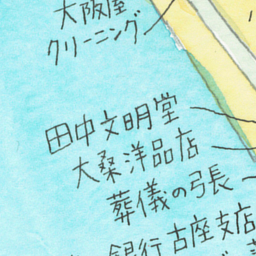 大阪屋
クリーニング
田中文明堂
大桑洋品店
葬儀の弓長
銀行古座支店